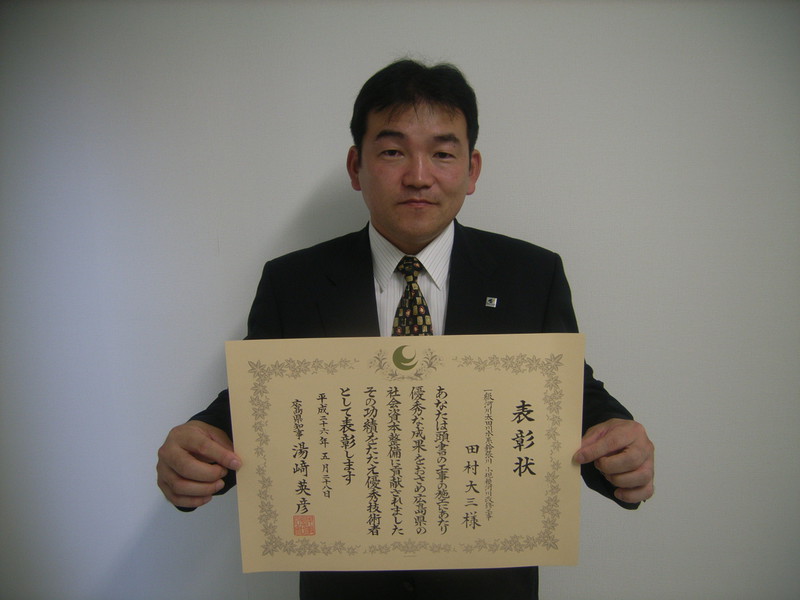 表彰状
一級河川太田川水系
田村大三様
あなたは頭書の工事の施工にあたり
優秀な成果をおさめ広島県の
社会資本整備に貢献されました
その功績をたたえ優秀技術者
として表彰します
平成二十六年五月二十八日
広島県知事 湯﨑英彦